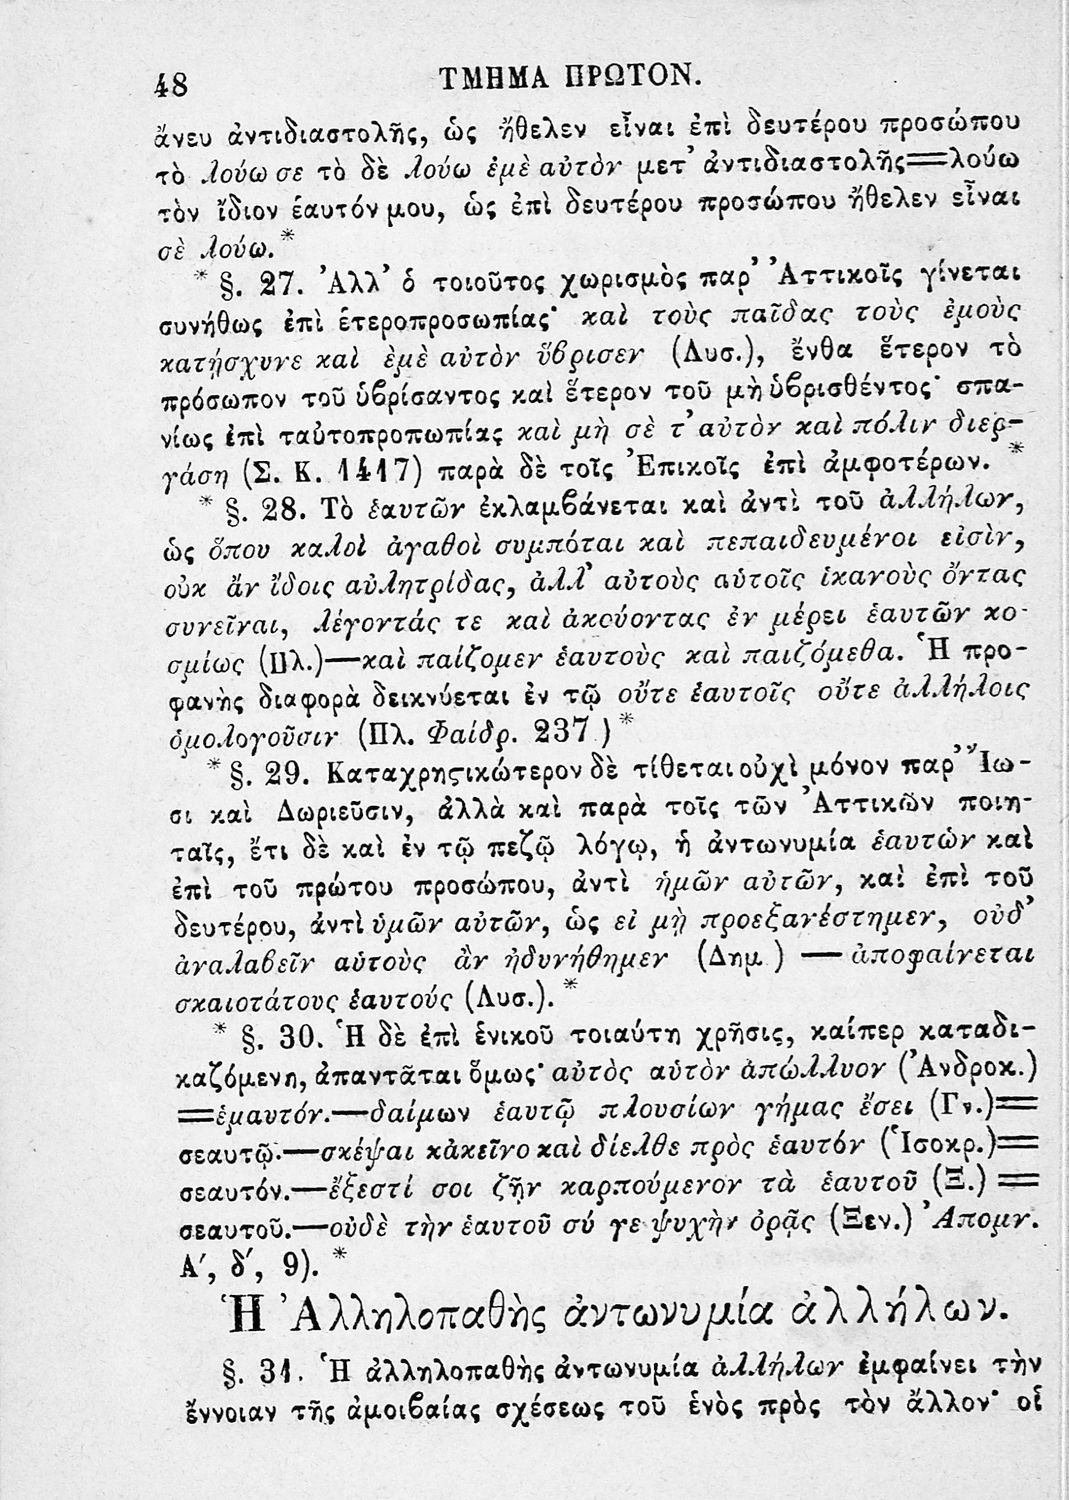 48 ΤΜΗΜΑ ΠΡΩΤΟΝ.
ἄνευ ἀντιδιαστολῆς, ὡς ἤθελεν εἶναι ἐπὶ δευτέρου προσώπου
τὸ λούω σε τὸ δὲ λούω ἐμὲ αὐτὸν μετ᾿ ἀντιδιαστολῆς=λούω
τὸν ἴδιον ἑαυτόν μου, ὡς ἐπὶ δευτέρου προσώπου ἤθελεν εἶναι
σὲ λούω.*
* §. 27. Ἀλλ᾿ ὁ τοιοῦτος χωρισμὸς παρ᾿ Ἀττικοῖς γίνεται
συνήθως ἐπὶ ἑτεροπροσωπίας· καὶ τοὺς παῖδας τοὺς ἐμοὺς
κατῄσχυνε καὶ ἐμὲ αὐτὸν ὕβρισεν (Λυσ.), ἔνθα ἕτερον τὸ
πρόσωπον τοῦ ὑβρίσαντος καὶ ἕτερον τοῦ μὴ ὑβρισθέντος· σπα-
νίως ἐπὶ ταὐτοπροπωπίας καὶ μὴ σὲ τ᾿ αὐτὸν καὶ πόλιν διερ-
γάσῃ (Σ. Κ. 1417) παρὰ δὲ τοῖς Ἐπικοῖς ἐπὶ ἀμφοτέρων. *
* §. 28. Τὸ ἑαυτῶν ἐκλαμβάνεται καὶ ἀντὶ τοῦ ἀλλήλων,
ὡς ὅπου καλοὶ ἀγαθοὶ συμπόται καὶ πεπαιδευμένοι εἰσὶν,
οὐκ ἂν ἴδοις αὐλητρίδας, ἀλλ᾿ αὐτοὺς αὑτοῖς ἱκανοὺς ὄντας
συνεῖναι, λέγοντάς τε καὶ ἀκούοντας ἐν μέρει ἑαυτῶν κο-
σμίως (Πλ.)—καὶ παίζομεν ἑαυτοὺς καὶ παιζόμεθα. Ἡ προ-
φανὴς διαφορὰ δεικνύεται ἐν τῷ οὔτε ἑαυτοῖς οὔτε ἀλλήλοις
ὁμολογοῦσιν (Πλ. Φαίδρ. 237 )*
* §. 29. Καταχρηϛικώτερον δὲ τίθεται οὐχὶ μόνον παρ᾿ Ἴω-
σι καὶ Δωριεῦσιν, ἀλλὰ καὶ παρὰ τοῖς τῶν Ἀττικῶν ποιη-
ταῖς, ἔτι δὲ καὶ ἐν τῷ πεζῷ λόγῳ, ἡ ἀντωνυμία ἑαυτὼν καὶ
ἐπὶ τοῦ πρώτου προσώπου, ἀντὶ ἡμῶν αὐτῶν, καὶ ἐπὶ τοῦ
δευτέρου, ἀντὶ ὑμῶν αὐτῶν, ὡς εἰ μὴ προεξανέστημεν, οὐδ᾿
ἀναλαβεῖν αὑτοὺς ἂν ἠδυνήθημεν (Δημ ) — ἀποφαίνεται
σκαιοτάτους ἑαυτούς (Λυσ.). *
* §. 30. Ἡ δὲ ἐπὶ ἑνικοῦ τοιαύτη χρῆσις, καίπερ καταδι-
καζόμενη, ἀπαντᾶται ὅμως· αὐτὸς αὑτὸν ἀπώλλυον (Ἀνδροκ.)
=ἐμαυτόν.—δαίμων ἑαυτῷ πλουσίων γήμας ἔσει (Γν.)=
σεαυτῷ.—σκέψαι κἀκεῖνο καὶ δίελθε πρὸς ἑαυτόν (Ἰσοκρ.)=
σεαυτόν.—ἔξεστί σοι ζῆν καρπούμενον τὰ ἑαυτοῦ (Ξ.) =
σεαυτοῦ.—οὐδὲ τὴν ἑαυτοῦ σύ γε ψυχὴν ὁρᾷς (Ξεν.) Ἀπομν.
Α′, δ′, 9). *
Ἡ Ἀλληλοπαθὴς ἀντωνυμία ἀλλήλων.
§. 31. Ἡ ἀλληλοπαθὴς ἀντωνυμία ἀλλήλων ἐμφαίνει τὴν
ἔννοιαν τῆς ἀμοιβαίας σχέσεως τοῦ ἑνὸς πρὸς τὸν ἄλλον· οἷ